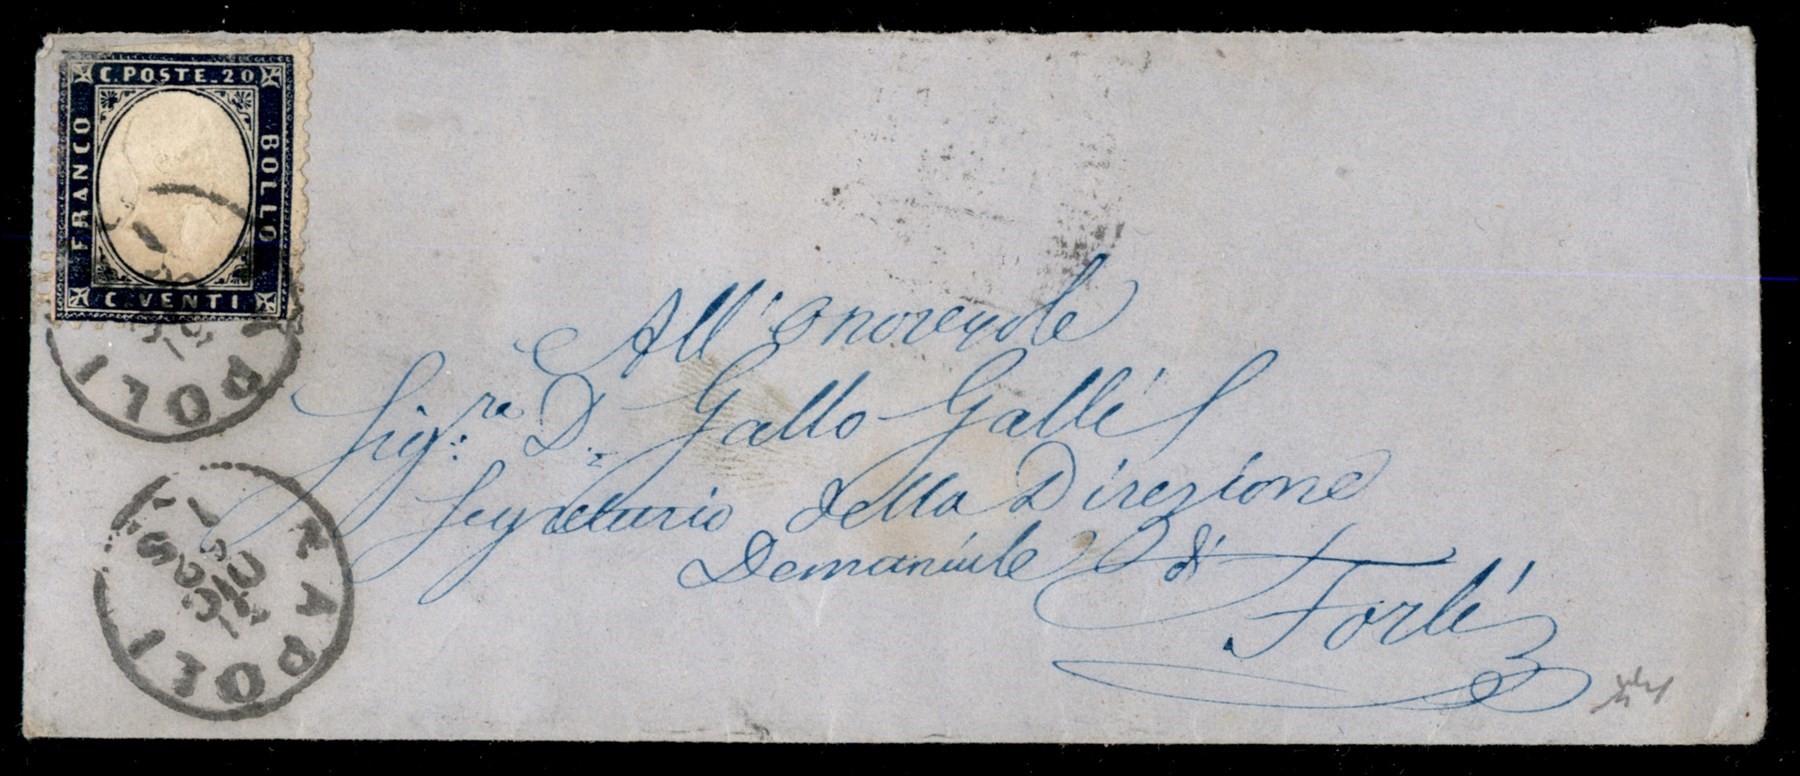 C. POSTE. 20
FRANCO
BOLLO
C. VENTI
POLI
All' Onorevole
Sig.re D. Gallo Gallé
Segretario della Direzione
Demaniale di
Forlì
NAPOLI